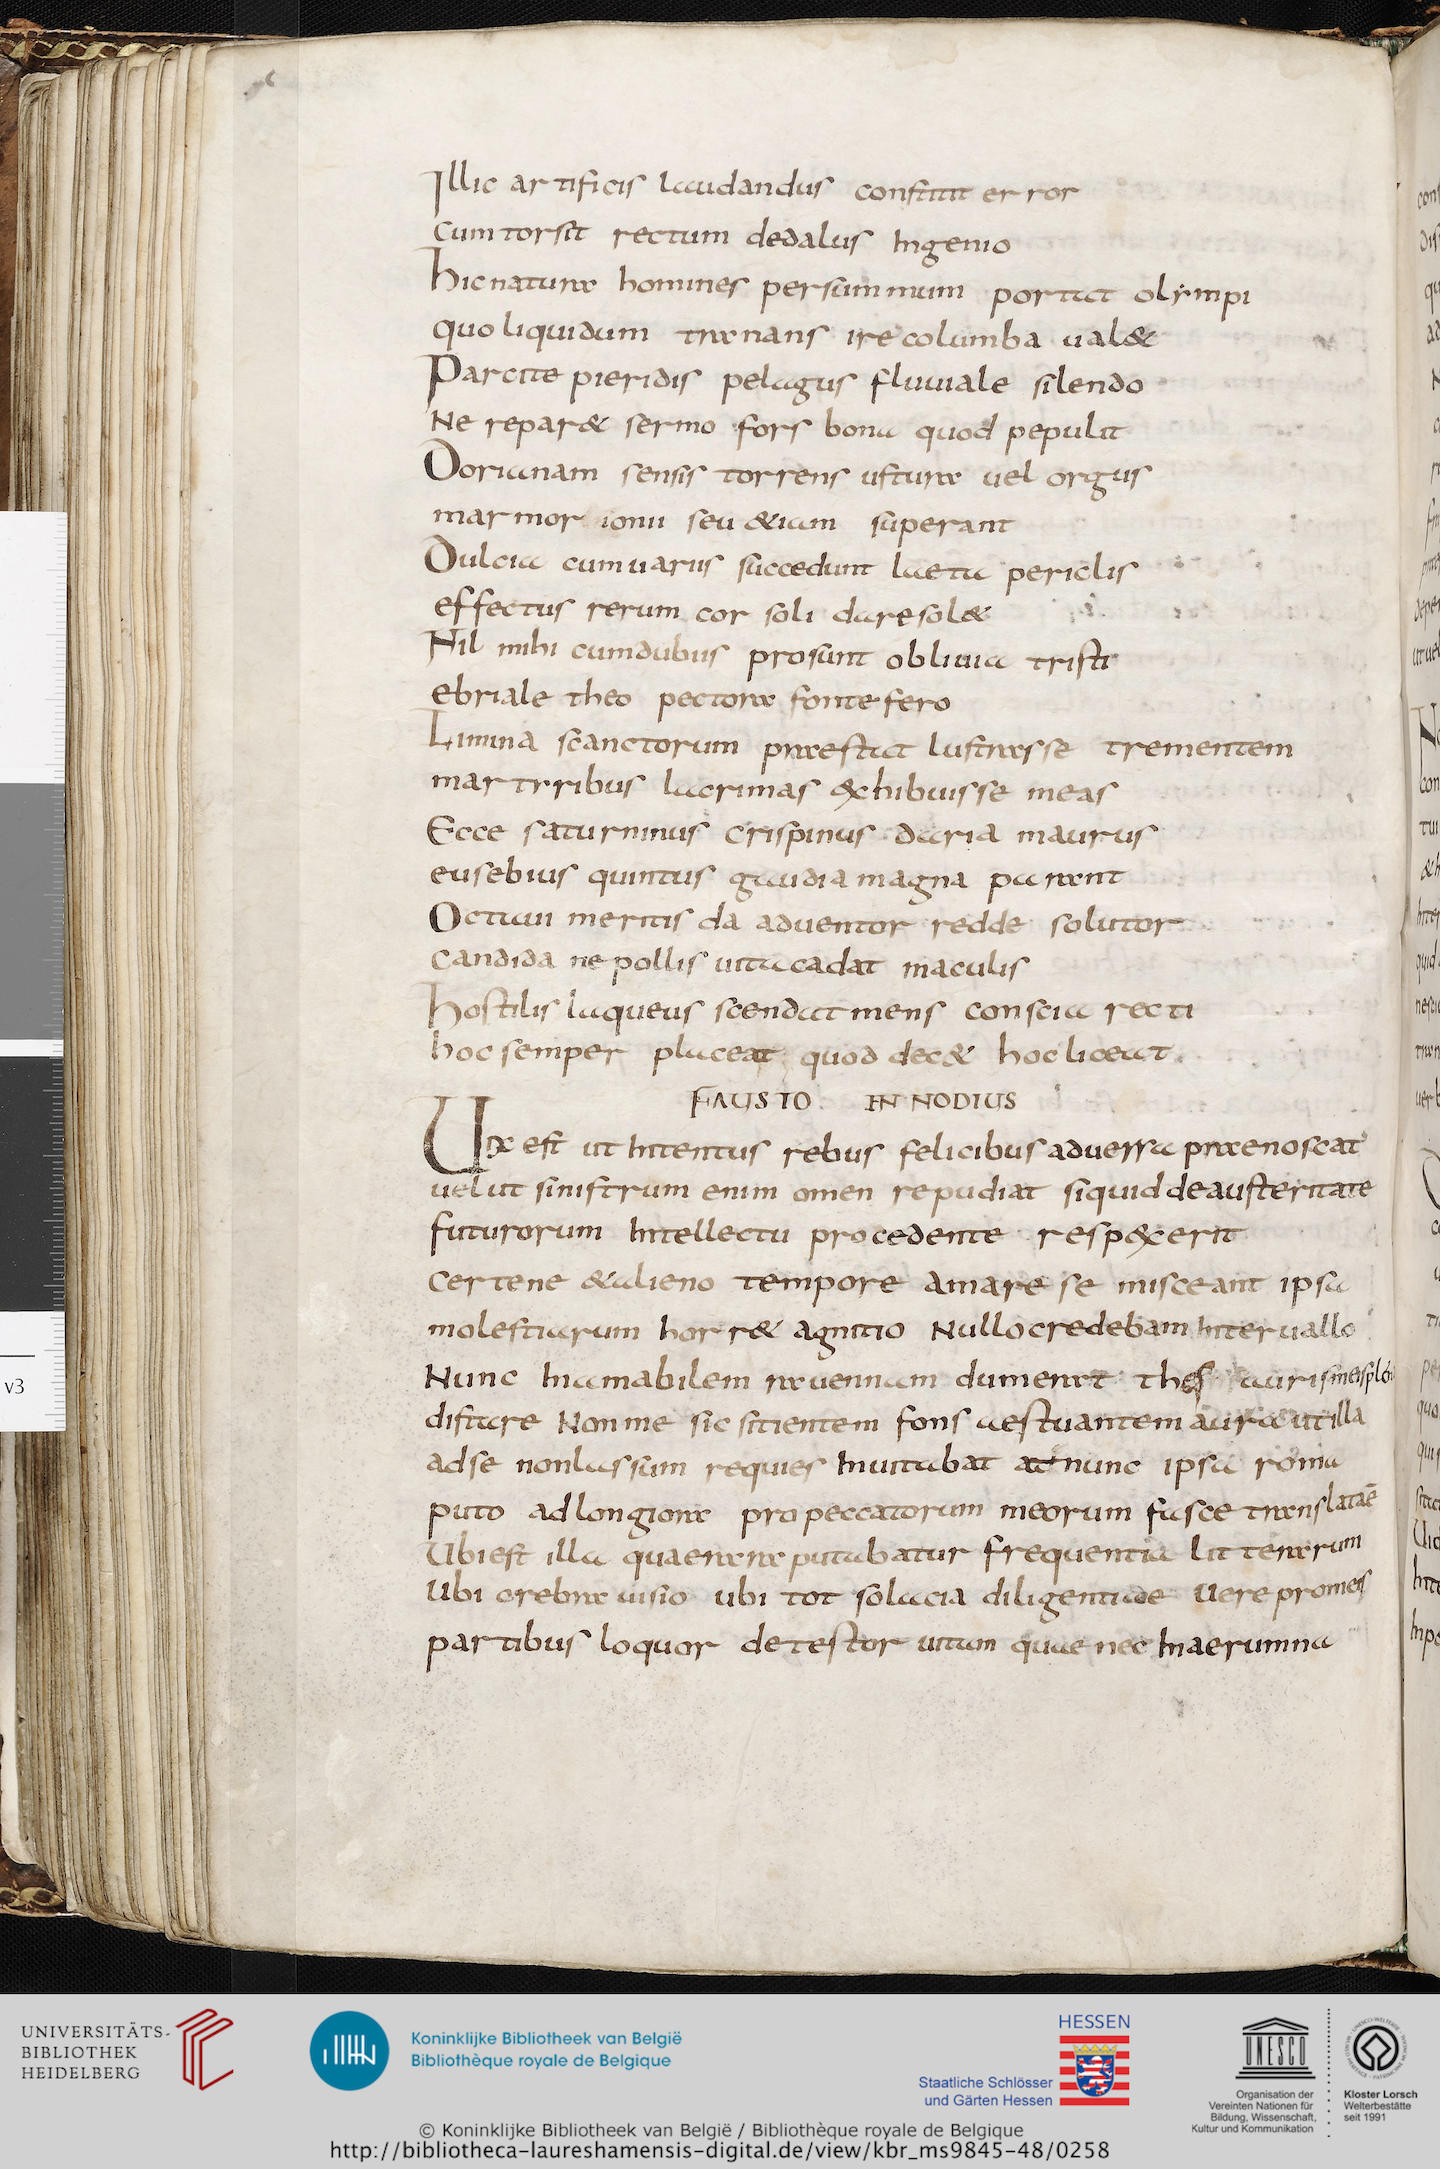 Illic artificis laudandus constitit error
cum torsit rectum dedalus Ingenio
hic natura homines per summum portat olympi
quo liquidum tranans ire columba ual&
Parcite pieridis pelagus fluuiale silendo
Ne repar& sermo fors bona quod pepulit
Dorianam sensis torrens ustura uel orgus
marmor ionii seu &iam superant
Dulcia cum uariis succedunt laeta periclis
effectus rerum cor soli dare sol&
Nil mihi cum dubiis prosunt obliuia tristi
ebriale theo pectora fonte fero
Limina scanctorum praestat lustrasse trementem
martrribus lacrimas &chibuisse meas
Ecce saturninus crispinus daria maurus
eusebius quintus gaudia magna parant
Octaui meritis da aduentor redde solutor
candida ne pollis uita cadat maculis
hostilis laqueus scendat mens conscia recti
hoc semper placeat quod dec& hoc liceat.
FAUSTO INNODIUS
Ura est ut Intentus rebus felicibus aduersa praenoscat
uelut sinistrum enim omen repudiat siquid de austeritate
futurorum Intellectu procedente resp&cerit
certene &alieno tempore amare se misceant ipsa
molestiarum horr& agnitio Nullo credebam Interuallo
Nunc Inamabilem rauennam dum erat thesauris meis plo
distare Non me sic sitientem fons aestuantem aura ut illa
ad se non lassum requies Inuitabat at nunc ipsa roma
puto ad longiora pro peccatorum meorum fasce translataē
Ubi est illa quae rara putabatur frequentia litterarum
Ubi crebra uisio ubi tot solacia diligentiae Uere promes
partibus loquor detestor uitam quae nec In aerumna
v3
UNIVERSITÄTS-
BIBLIOTHEK
HEIDELBERG
Koninklijke Bibliotheek van België
Bibliothèque royale de Belgique
HESSEN
Staatliche Schlösser
und Gärten Hessen
UNESCO
Organisation der
Vereinten Nationen für
Bildung, Wissenschaft,
Kultur und Kommunikation
Kloster Lorsch
Welterbestätte
seit 1991
© Koninklijke Bibliotheek van België / Bibliothèque royale de Belgique
http://bibliotheca-laureshamensis-digital.de/view/kbr_ms9845-48/0258